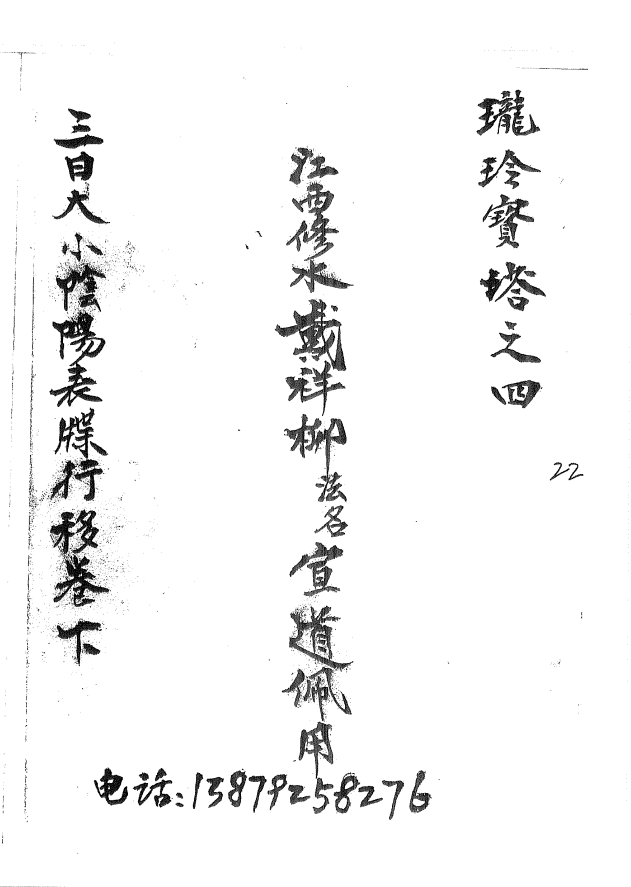 瓏玲寳塔之四
22
江西修水戴祥柳法名宣道佩用
三日大小陰陽表牒行移卷下
电话:13879258276